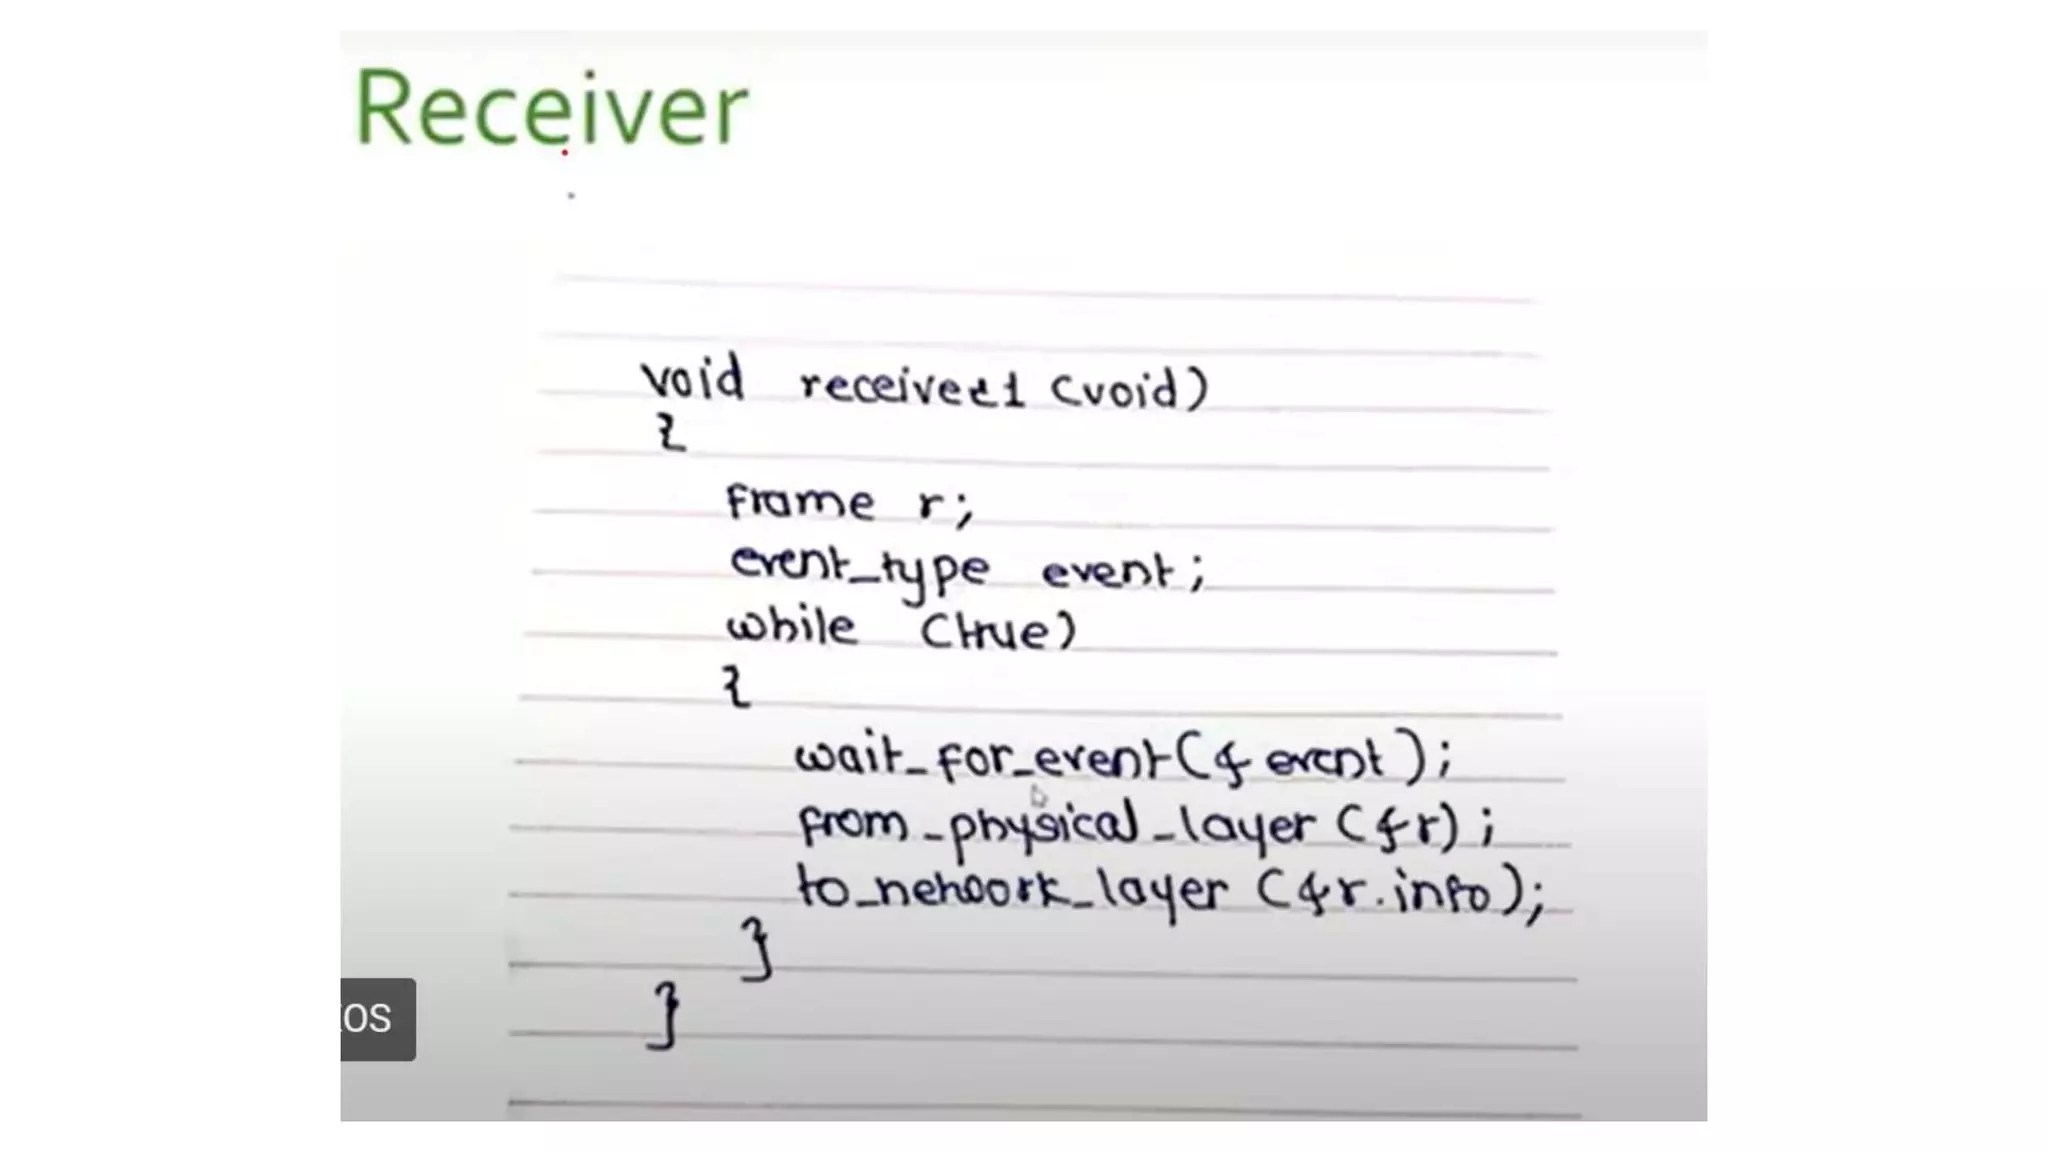 Receiver
void receiver1 (void)
{
frame r;
event_type event;
while (true)
{
wait_for_event(& event);
from_physical_layer (&r);
to_network_layer (&r.info);
}
}
OS